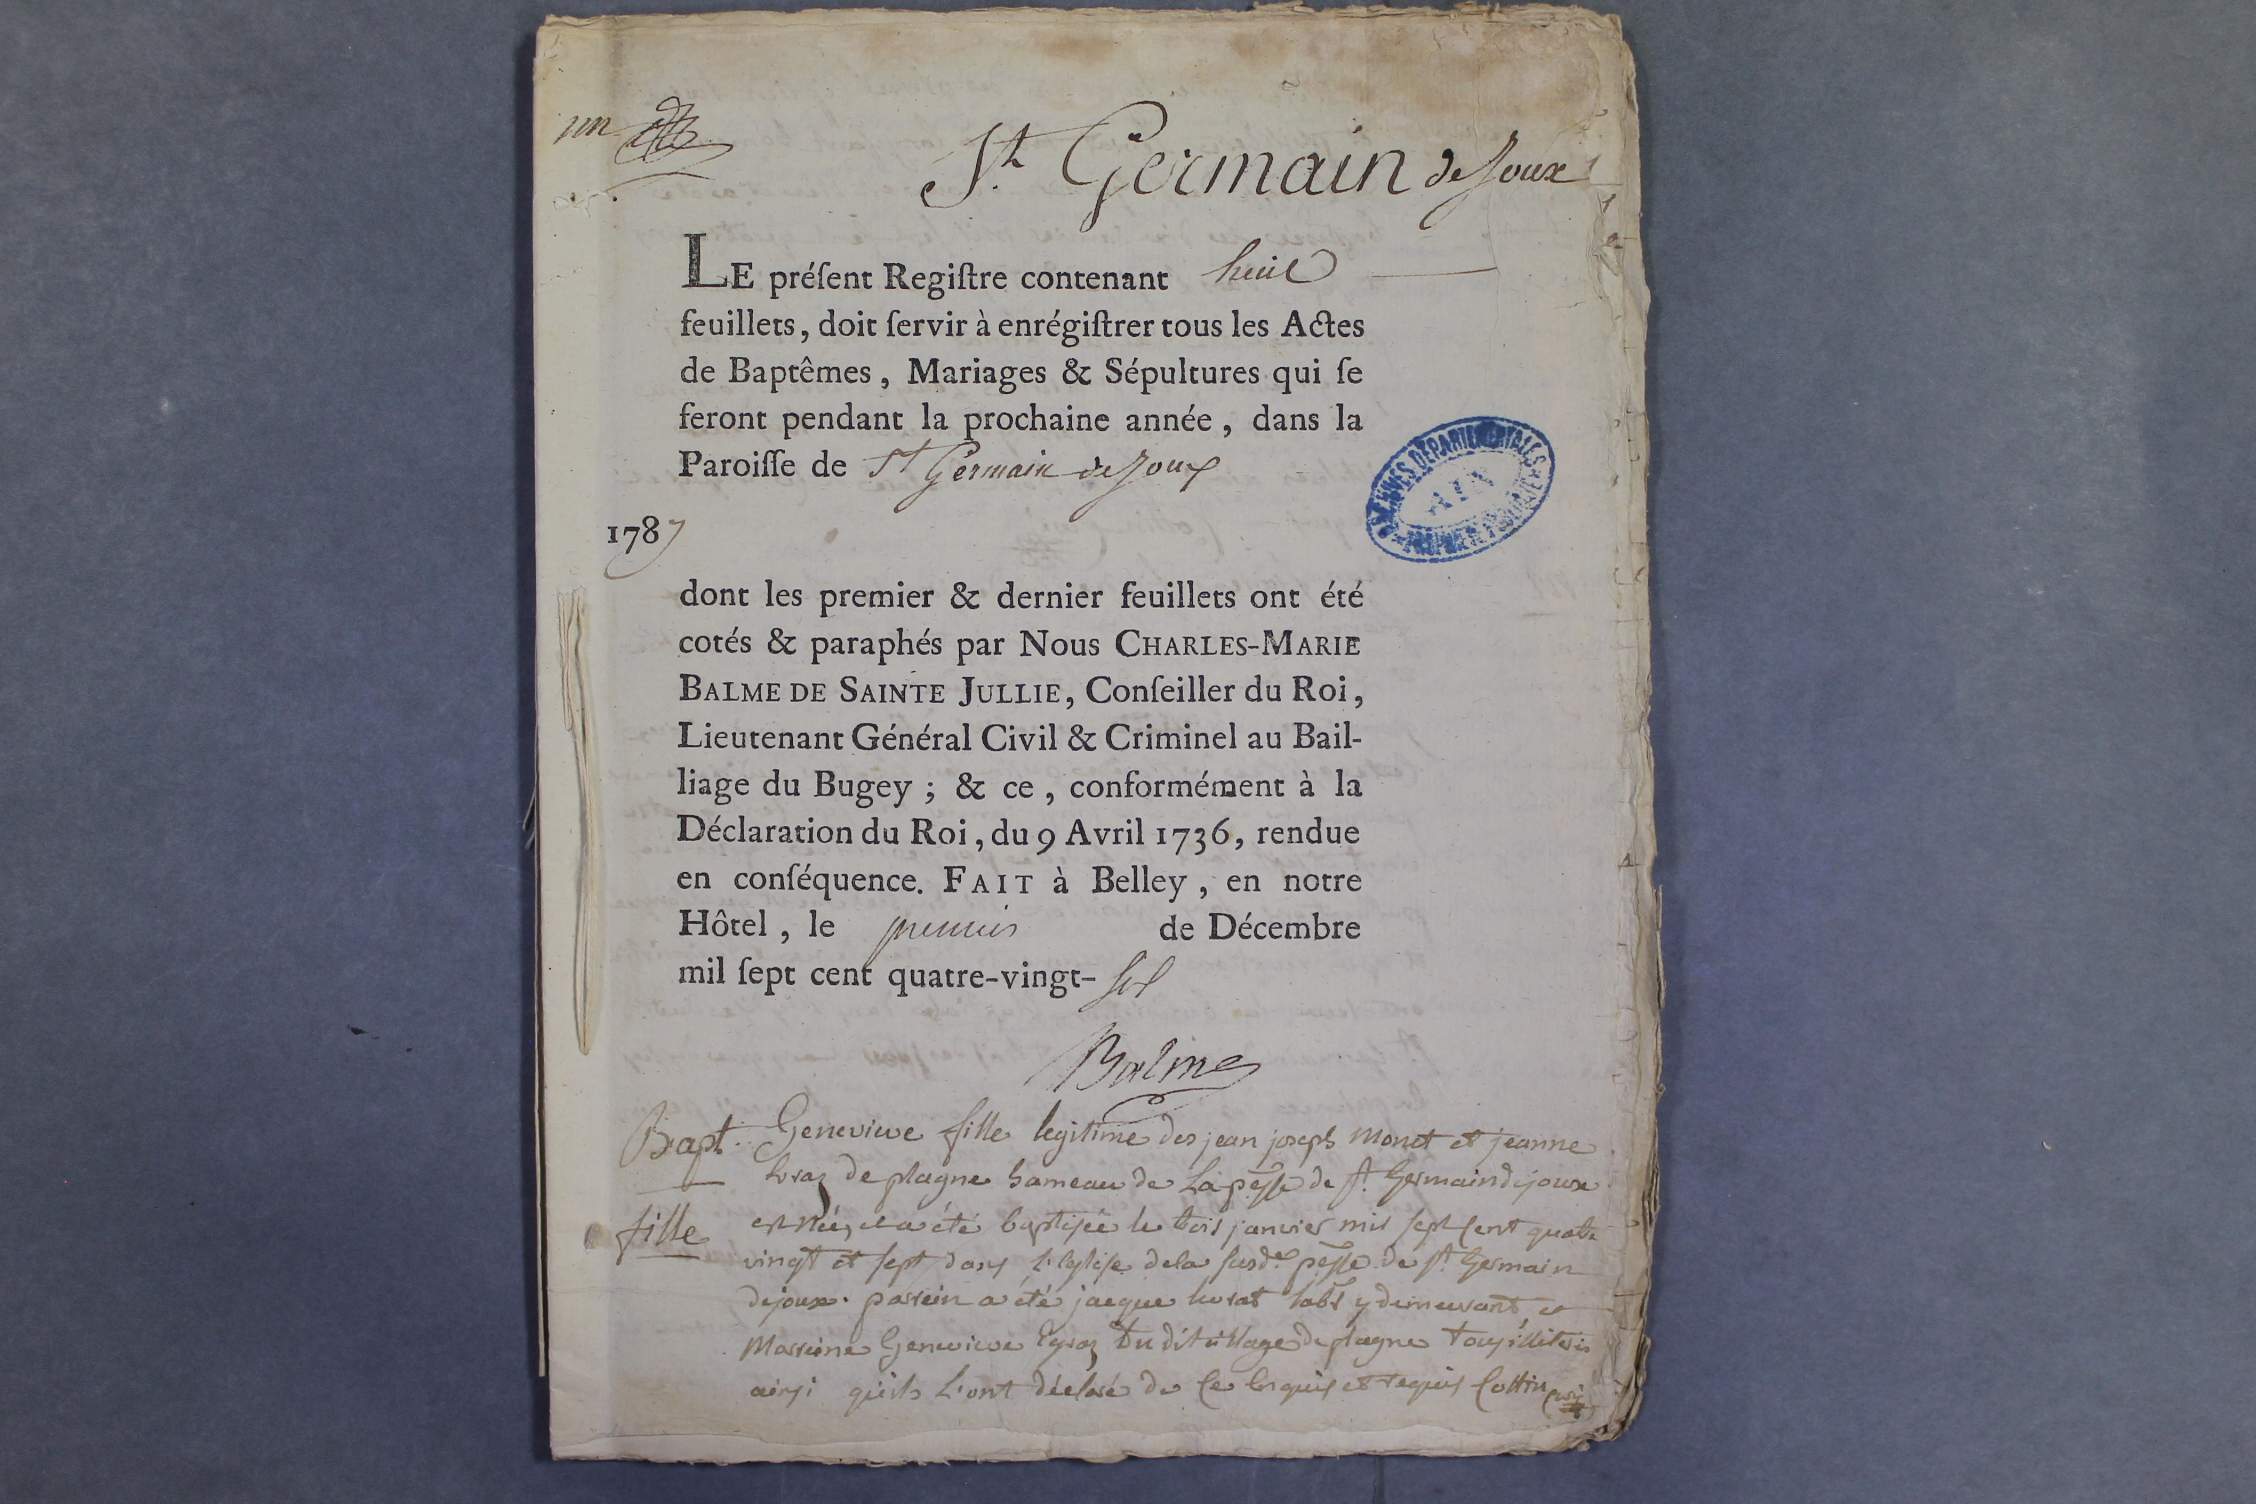 un
St Germain de Joux
LE préſent Regiſtre contenant huit
feuillets, doit ſervir à enrégiſtrer tous les Actes
de Baptêmes, Mariages & Sépultures qui ſe
feront pendant la prochaine année, dans la
Paroiſſe de St Germain de Joux
1787
dont les premier & dernier feuillets ont été
cotés & paraphés par Nous CHARLES-MARIE
BALME DE SAINTE JULLIE, Conſeiller du Roi,
Lieutenant Général Civil & Criminel au Bail-
liage du Bugey ; & ce, conformément à la
Déclaration du Roi, du 9 Avril 1736, rendue
en conſéquence. FAIT à Belley, en notre
Hôtel, le premier de Décembre
mil ſept cent quatre-vingt-six
Balme
Bapt. Genevieve fille legitime des jean joseph Monet et jeanne
de plagne hameau de La psse de st Germain dejoux
fille est née, et a été baptisée le trois janvier mil sept cent quatre
vingt et sept dans L'eglise de la susde psse de st Germain
dejoux. parrein a été jacque habt y demeurant, et
Marreine Genevieve du dit village de plagne tous illiteris
ainsi qu'ils L'ont déclaré de ce enquis et requis Cottin curé
ARCHIVES DÉPARTEMENTALES
AIN
PROPRIÉTÉ PUBLIQUE